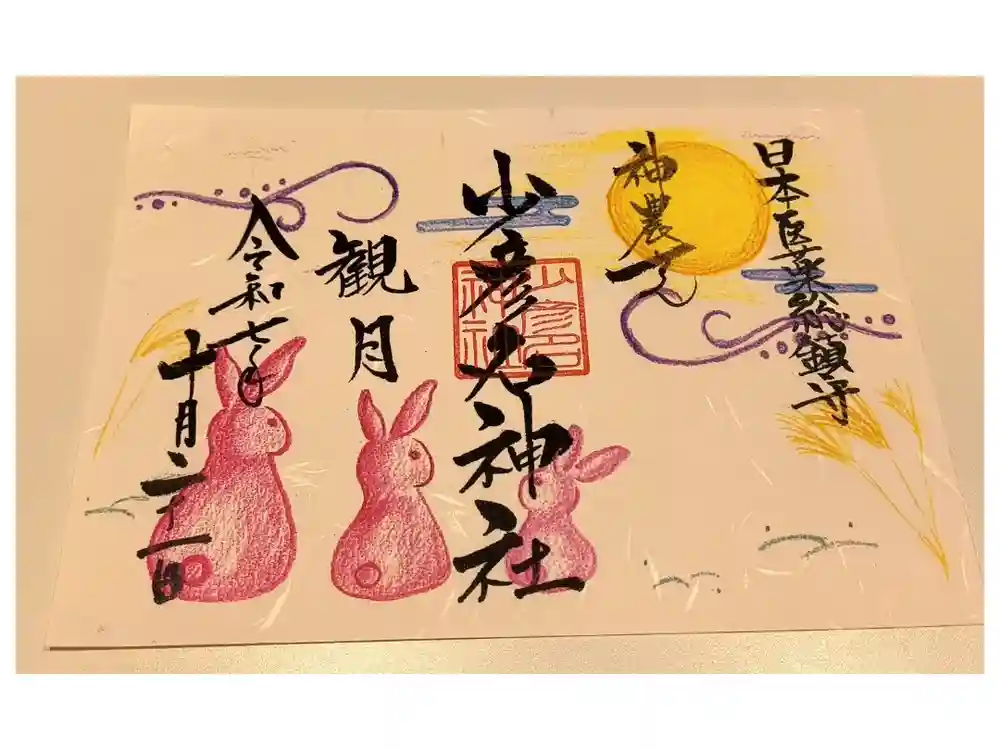 日本医薬総鎮守
神農さん
少彦名神社
少彦名
神社
観月
令和七年
十月二十一日